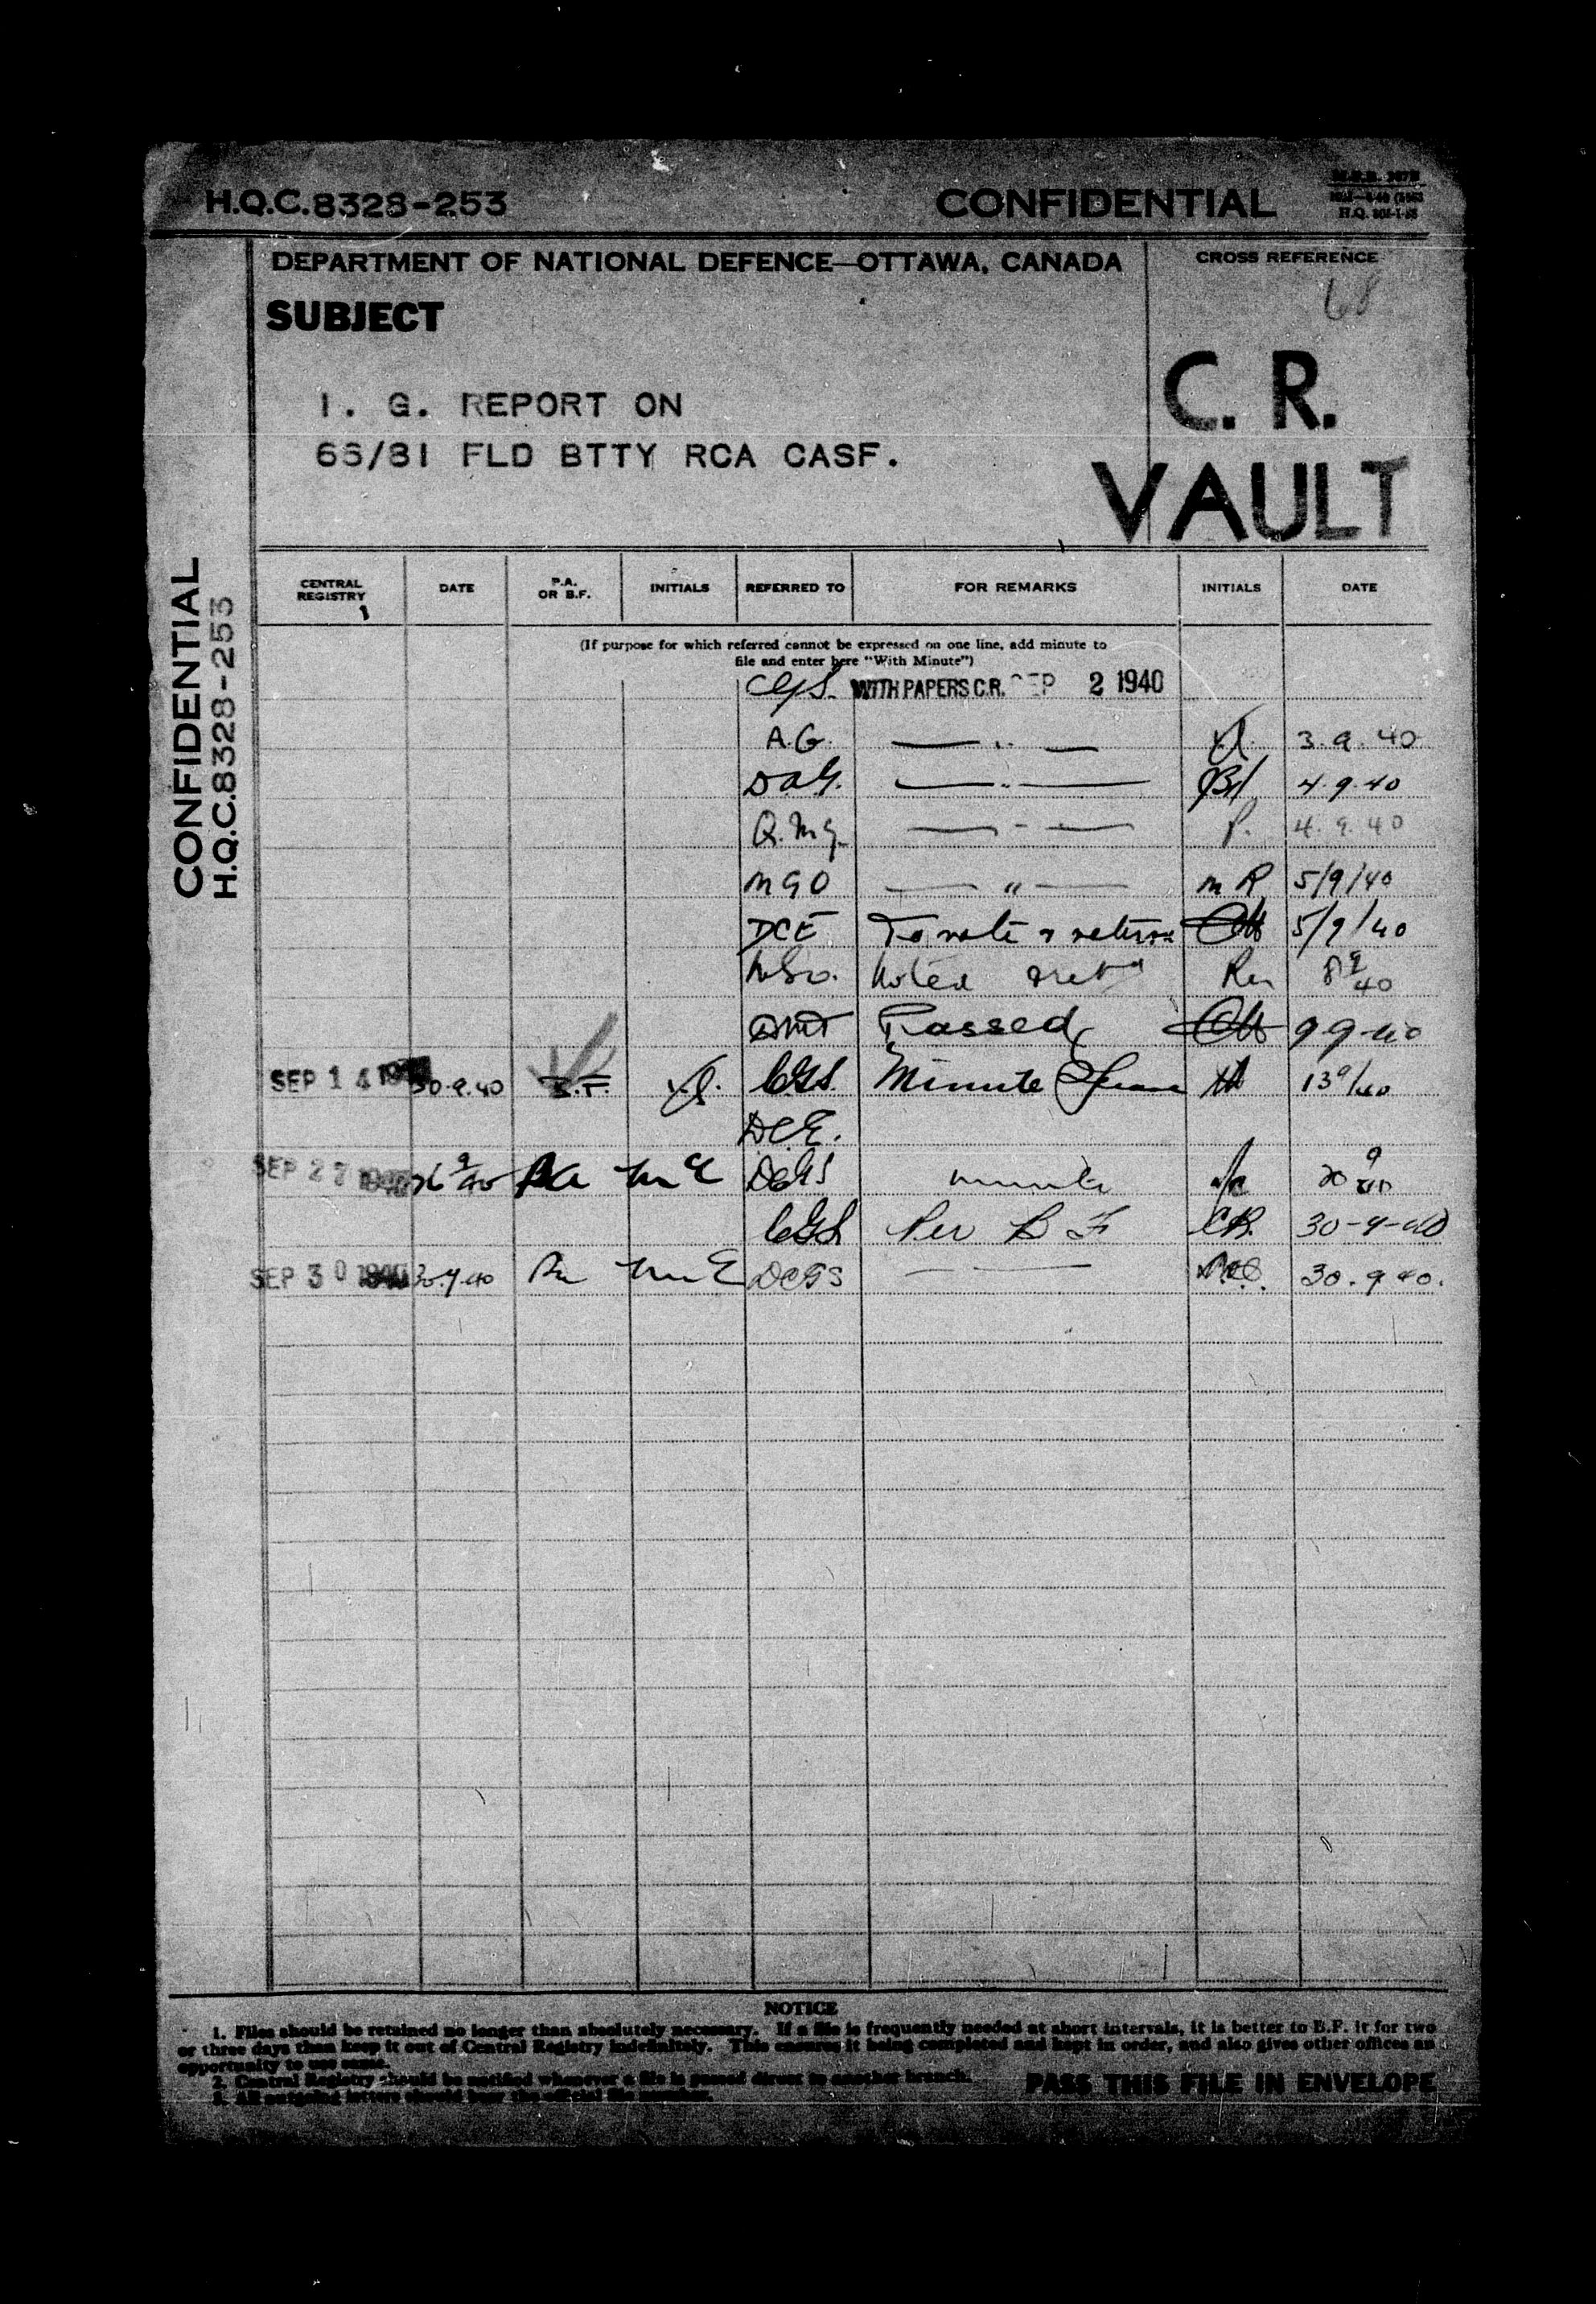 H.Q.C. 8328-253 CONFIDENTIAL
H.Q.
DEPARTMENT OF NATIONAL DEFENCE—OTTAWA, CANADA
CROSS REFERENCE
68
SUBJECT
I. G. REPORT ON
66/81 FLD BTTY RCA CASF.
C. R.
VAULT
CONFIDENTIAL
H.Q.C.8328-253
CENTRAL REGISTRY DATE P.A. OR B.F. INITIALS REFERRED TO FOR REMARKS INITIALS DATE
(If purpose for which referred cannot be expressed on one line, add minute to
file and enter here "With Minute")
CGS. WITH PAPERS C.R. SEP 2 1940
A.G. — " — 3.9.40
DAG. — " — 4.9.40
Q.M.G. — " — P. 4.9.40
MGO — " — m R 5/9/40
DCE To note & return 5/9/40
Noted 8 9/40
Passed 9-9-40
SEP 14 1940 30.9.40 B.F. CGS Minute 13 9/40
DCE.
SEP 27 1940 26 9/40 PA McE DCGS minute
CGS Per B F 30-9-40
SEP 30 1940 30.9.40 PA McE DCGS — — 30.9.40.
NOTICE
1. Files should be retained no longer than absolutely necessary. If a file is frequently needed at short intervals, it is better to B.F. it for two
or three days than keep it out of Central Registry indefinitely. This ensures it being completed and kept in order, and also gives other offices an
opportunity to use same.
2. Central Registry should be notified whenever a file is passed direct to another branch.
3. All outgoing letters should bear the official file number.
PASS THIS FILE IN ENVELOPE